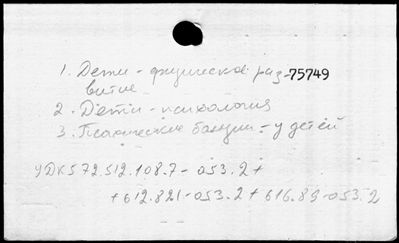 1. Дети - физическое раз- 75749
витие
2. Дети - психология
3. Психические болезни - у детей
УДК 572.512.108.7-053.2 +
+ 612.821-053.2 + 616.89-053.2